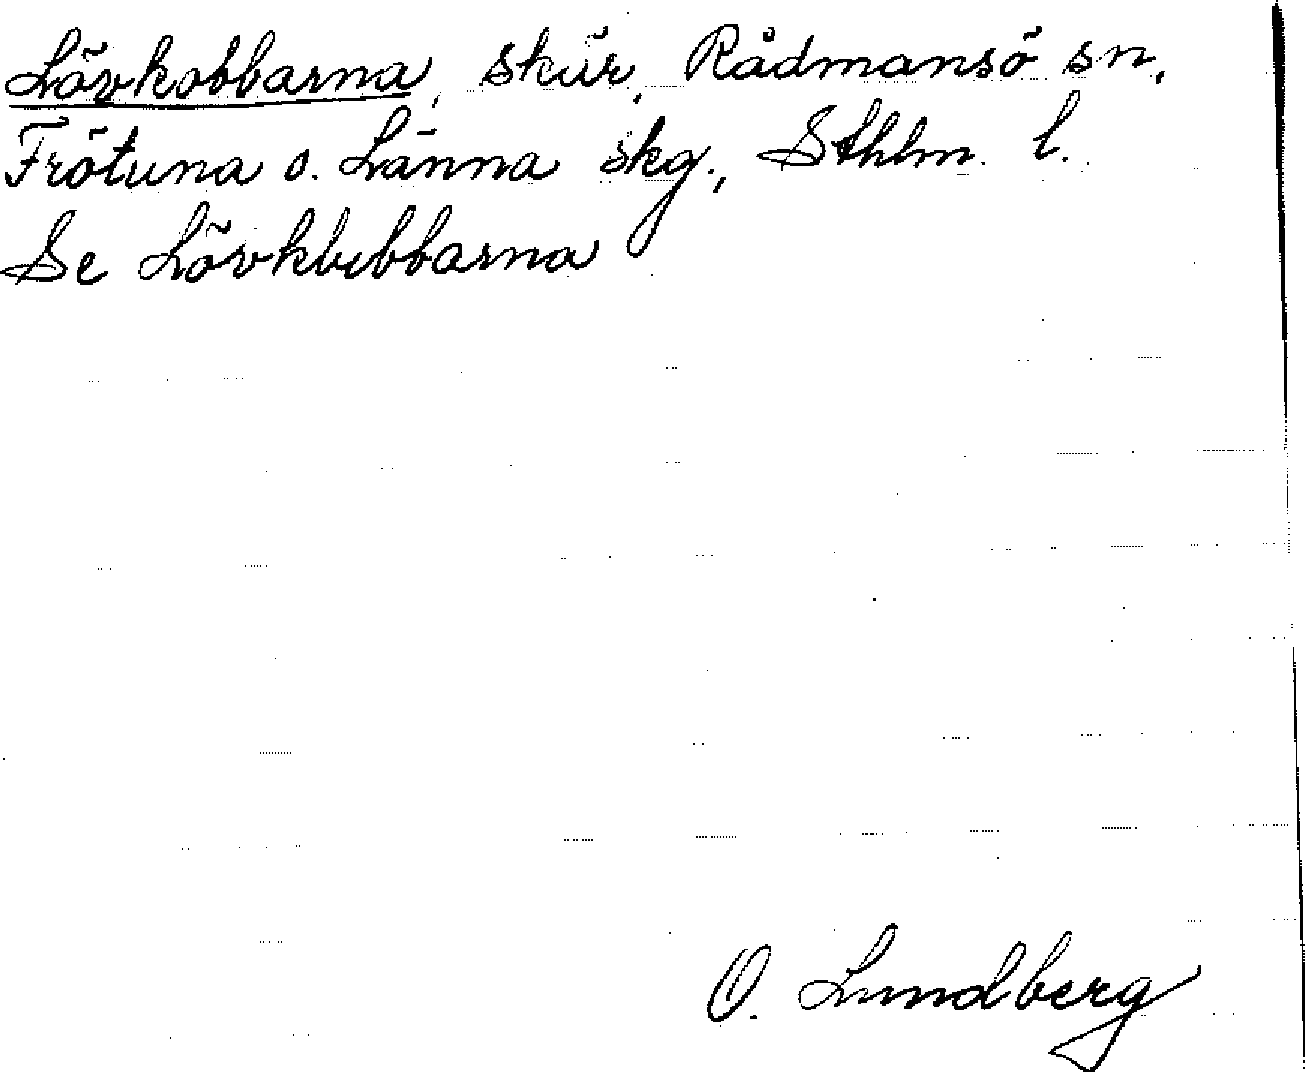 Lövkobbarna, skär, Rådmansö sn,
Frötuna o. Länna skg., Sthlm. l.
Se Lövklubbarna
O. Lundberg